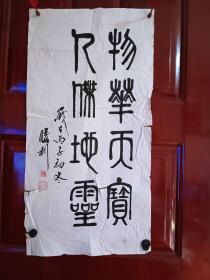 物華天寶
人傑地靈
歲在丙子初冬
勝利